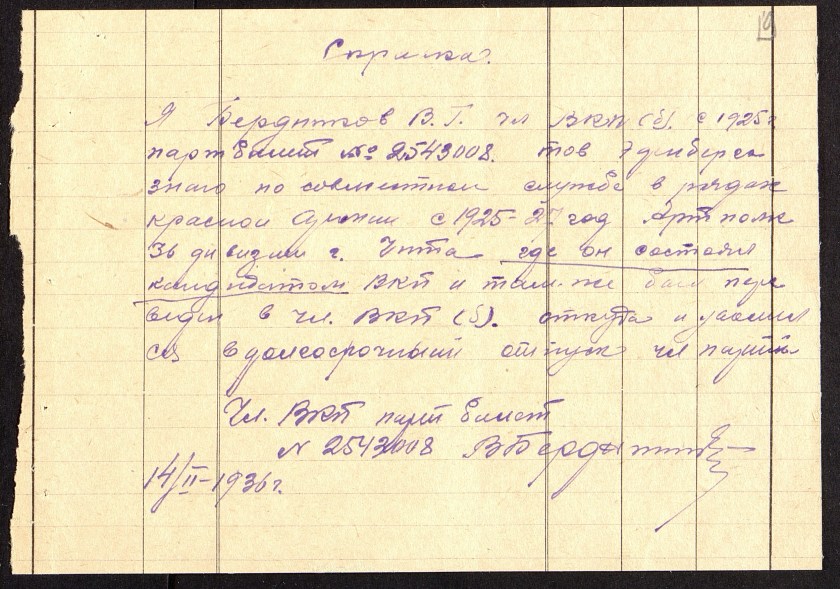 Справка.
Я Бердников В.Г. чл ВКП(б). с 1925г
партбилет № 2543008. тов Эденберга
знаю по совместной службе в рядах
красной Армии с 1925-27 год Артполк
36 дивизии г. Чита где он состоял
кандидатом ВКП и там же был пере
веден в чл. ВКП (б). откуда и уволил
ся в долгосрочный отпуск чл партии
Чл. ВКП парт билет
N 2543008 ВБердник
14/II-1936г.